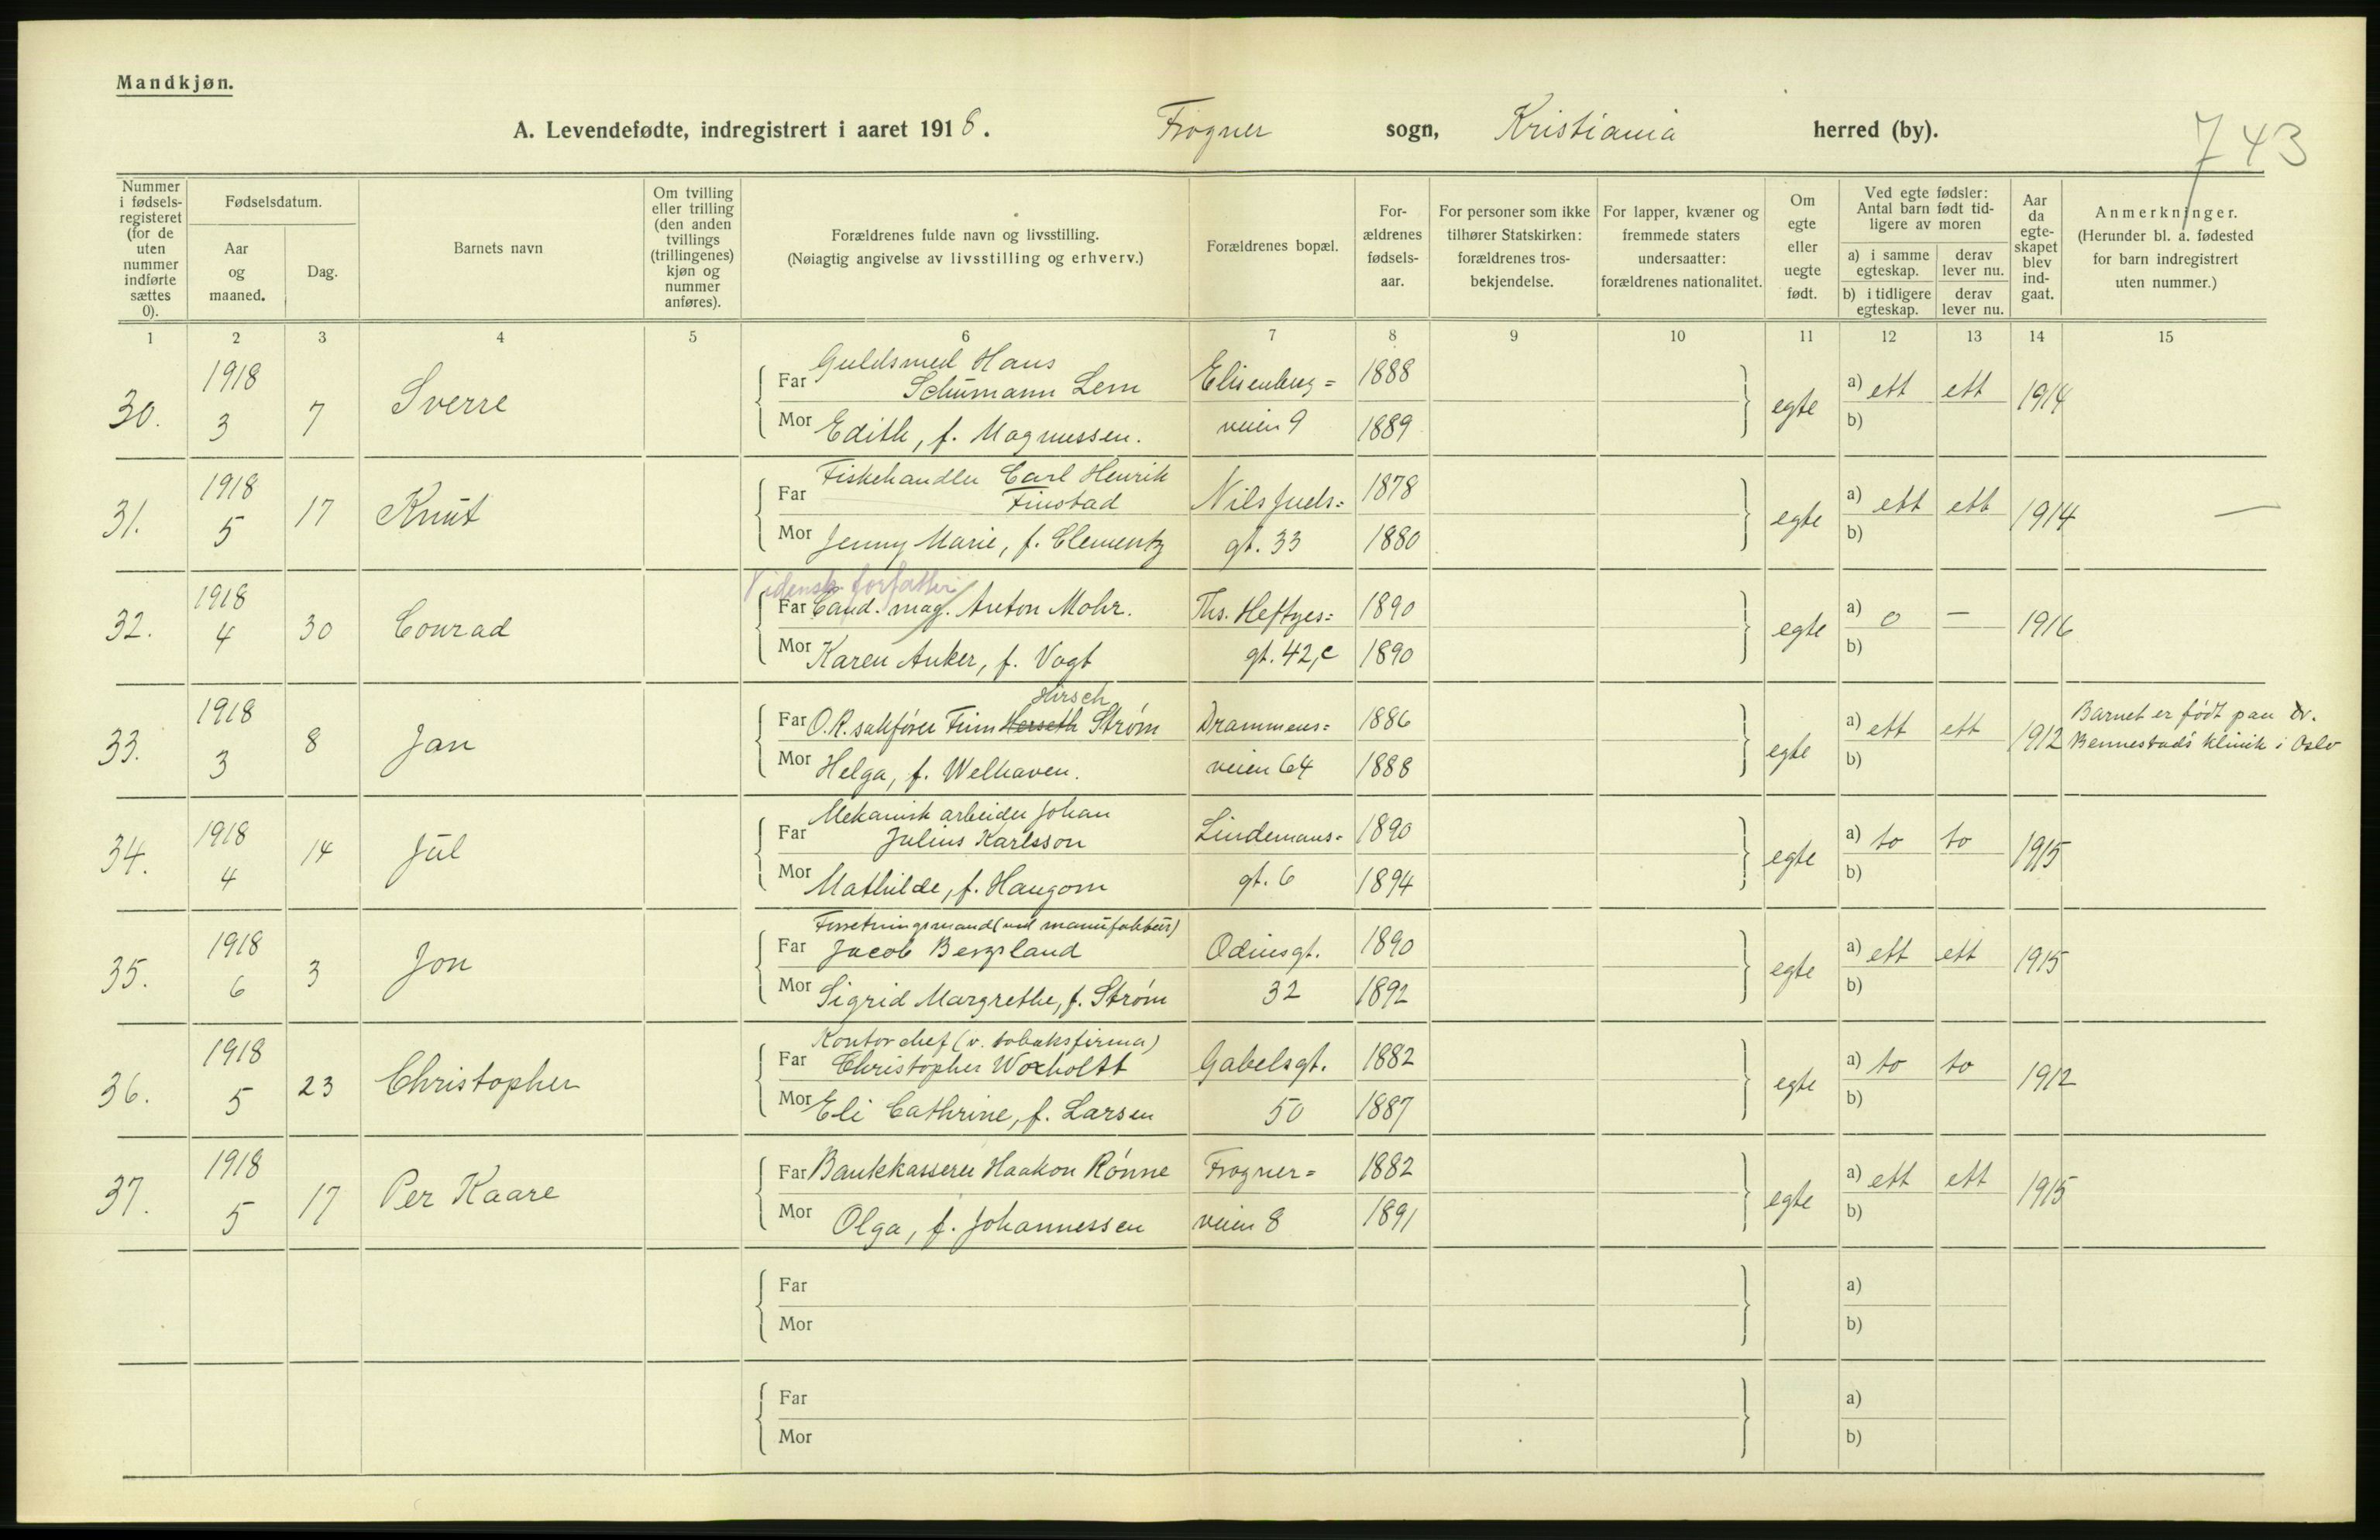 Mandkjøn.
A. Levendefødte, indregistrert i aaret 1918. Frogner sogn, Kristiania herred (by).
743
Nummer i fødselsregisteret (for de uten nummer indførte sættes 0).
Fødselsdatum.
Aar og maaned.
Dag.
Barnets navn
Om tvilling eller trilling (den anden tvillings (trillingenes) kjøn og nummer anføres).
Forældrenes fulde navn og livsstilling.
(Nøiagtig angivelse av livsstilling og erhverv.)
Forældrenes bopæl.
Forældrenes fødselsaar.
For personer som ikke tilhører Statskirken: forældrenes trosbekjendelse.
For lapper, kvæner og fremmede staters undersaatter: forældrenes nationalitet.
Om egte eller uegte født.
Ved egte fødsler: Antal barn født tidligere av moren
a) i samme egteskap.
derav lever nu.
b) i tidligere egteskap.
derav lever nu.
Aar da egteskapet blev indgaat.
Anmerkninger.
(Herunder bl. a. fødested for barn indregistrert uten nummer.)
1 2 3 4 5 6 7 8 9 10 11 12 13 14 15
30. 1918 3 7 Sverre
Far Guldsmed Hans Schumann Lem Elisenberg= 1888
Mor Edith, f. Magnussen. veien 9 1889
egte a) ett ett 1914
b)
31. 1918 5 17 Knut
Far Fiskehandler Carl Henrik Finstad Nils Juels= 1878
Mor Jenny Marie, f. Clementz gt. 33 1880
egte a) ett ett 1914 —
b)
32. 1918 4 30 Conrad
Vidensk. forfatter
Far Cand. mag. Anton Mohr. Ths. Heftyes= 1890
Mor Karen Anker, f. Vogt gt. 42,c 1890
egte a) 0 — 1916
b)
33. 1918 3 8 Jan
Hirsch
Far O.R.sakfører Finn Herseth Strøm Drammens= 1886
Mor Helga, f. Welhaven. veien 64 1888
egte a) ett ett 1912
b)
Barnet er født paa Dr.
Bennestads klinik i Oslo
34. 1918 4 14 Jul
Far Mekanisk arbeider Johan Julius Karlsson Lindemans= 1890
Mor Mathilde, f. Haugom gt. 6 1894
egte a) to to 1915
b)
35. 1918 6 3 Jon
Forretningsmand (ved manufaktur)
Far Jacob Bergsland Odinsgt. 1890
Mor Sigrid Margrethe, f. Strøm 32 1892
egte a) ett ett 1915
b)
36. 1918 5 23 Christopher
Kontorchef (v. tobaksfirma)
Far Christopher Woxholtt Gabelsgt. 1882
Mor Eli Cathrine, f. Larsen 50 1887
egte a) to to 1912
b)
37. 1918 5 17 Per Kaare
Far Bankkasserer Haakon Rønne Frogner= 1882
Mor Olga, f. Johannessen veien 8 1891
egte a) ett ett 1915
b)
Far a)
Mor b)
Far a)
Mor b)